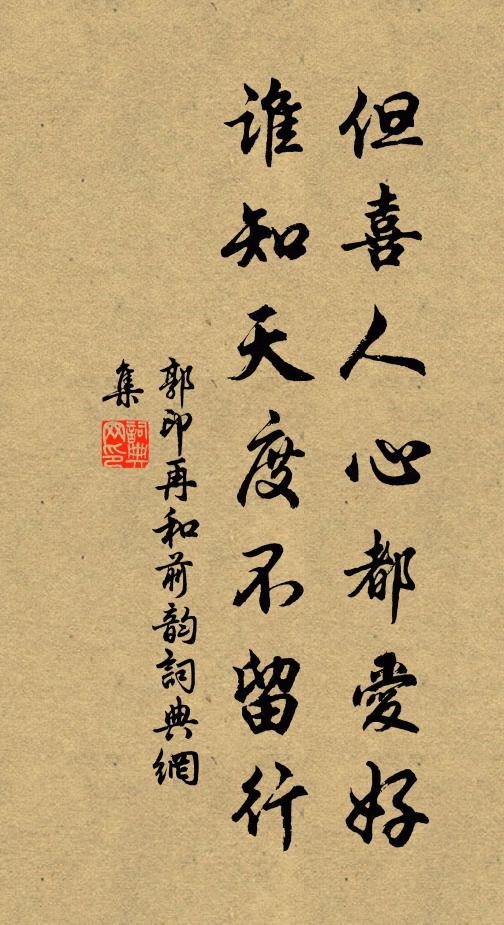 但喜人心都愛好
谁知天度不留行
郭印再和前韵詞典網
集
詞典網印